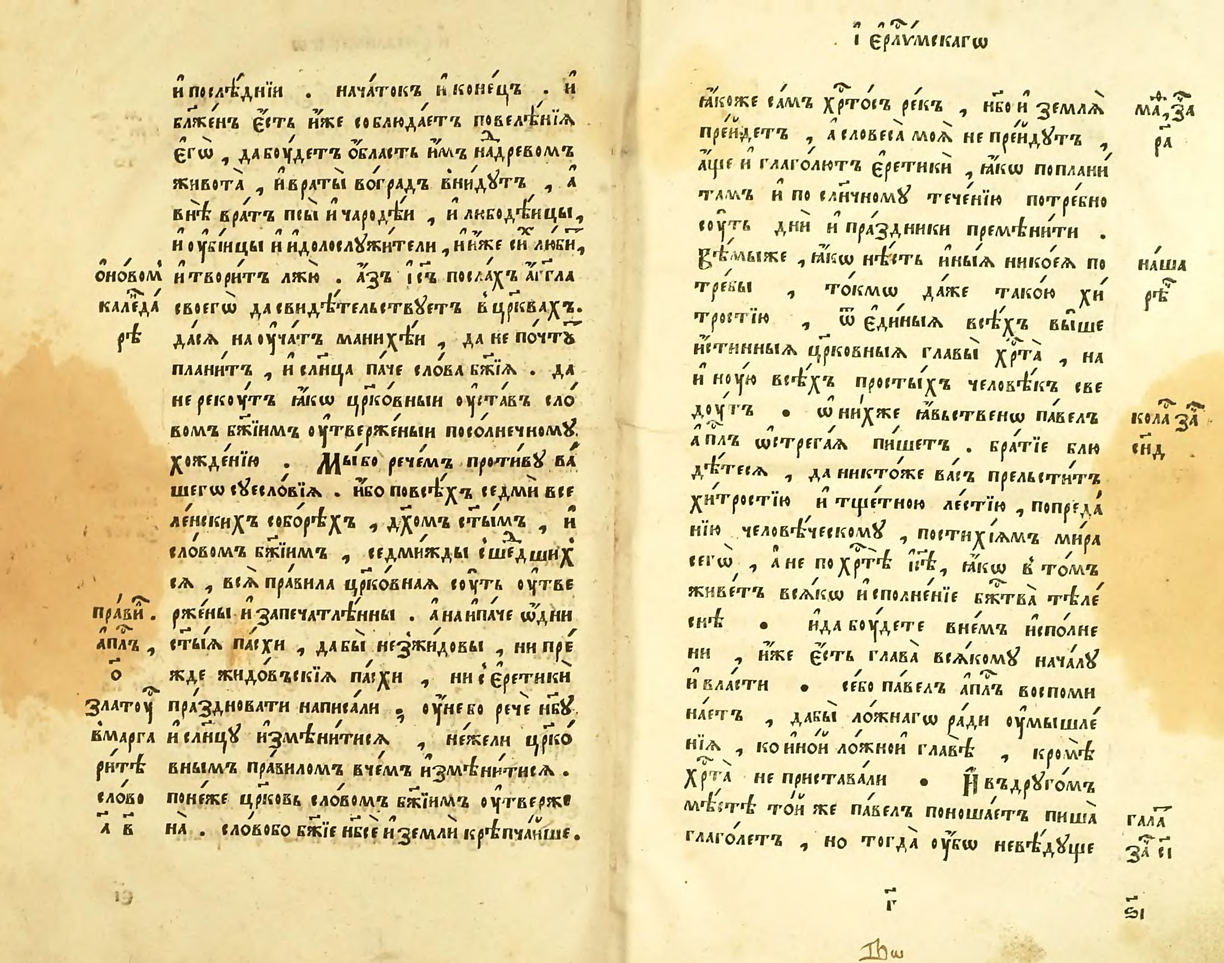 и҆ послѣ́днїи . нача́токъ и҆ коне́цъ . и҆
бл҃же́нъ є҆́сть и҆́же соблюда́етъ повелѣ́нїѧ
є҆гѡ̀ , да бꙋ́детъ ѻ҆́бласть и҆́мъ на́древомъ
живота̀ , и҆ враты̀ во́градъ вни́дутъ , а҆
внѣ̀ вра́тъ псы̀ и҆ чародѣ́и , и҆ любодѣ́ицы ,
и҆ ᲂу҆бі́ицы и҆ и҆долослужи́тели , и҆ и҆́же си́ лю́би ,
ѻ҆но́вом и҆ твори́тъ лжю̀ . а҆́зъ і҆с҃ъ посла́хъ а҆́гг҃ла
кале҇да́ своегѡ̀ да свидѣ́тельствꙋетъ в цр҃квахъ .
рѣ҇ да сѧ̀ наᲂу҆ча́тъ манихѣ́и , да не почтꙋ́
плани́тъ , и҆ сл҃нца па́че сло́ва бж҃їѧ . да
не рекꙋ́тъ ꙗ҆́кѡ цр҃ко́вныи ᲂу҆ста́въ сло́
вомъ бж҃їимъ ᲂу҆тверже́ныи посо́лнечному
хожде́нїю . Мы́ бо рече́мъ проти́ву ва́
шегѡ сꙋесло́вїѧ . и҆́бо по все́хъ седми́ все
ле́нскихъ собо́рѣхъ , дх҃омъ ст҃ы́мъ , и҆
сло́вомъ бж҃їимъ , седми́жды сше́дших
сѧ , всѧ̀ пра́вила цр҃ко́внаѧ сꙋ́ть ᲂу҆тве
пра́ви҇ . рже́ны и҆ запечатлѣ́нны . а҆ наипа́че ѡ҆ днѝ
а҆п҃лъ , ст҃ы́ѧ па́схи , да бы̀ не з жи́довы , ни пре́
о҃ жде жидо́въскїѧ па́схи , ни с є҆ретикѝ
златоꙋ҇ пра́здновати написа́ли ; ᲂу҆́не бо речѐ нб҃у
в марга и҆ сл҃нцу и҆змѣни́тисѧ , не́жели цр҃ко́
ри́тѣ внымъ пра́виломъ в че́мъ и҆змѣни́тисѧ .
сло́во поне́же цр҃ковь сло́вомъ бж҃їимъ ᲂу҆тверже
а҃ в҃ на̀ . сло́во бо бж҃їе нб҃сѐ и҆ землѝ крѣпча́ише .
і҆ є҆рл҃и́мскагѡ
ꙗ҆́коже са́мъ хрⷭ҇то́съ ре́къ , и҆́бо и҆ землѧ̀ маⷴ , за҇
пре́идетъ , а҆ словеса̀ моѧ̀ не пре́идутъ , ра҃
а҆́ще и҆ глаго́лютъ є҆ретикѝ , ꙗ҆́кѡ по плани́
тамъ и҆ по сл҃нчному тече́нїю потре́бно
сꙋ́ть днѝ и҆ пра́здники премѣни́ти .
вѣ́мы же , ꙗ҆́кѡ нѣ́сть и҆ны́ѧ никое́ѧ по на́ша
тре́бы , то́кмѡ да́же тако́ю хи́ рѣ҇
тростїю , ѿ є҆ди́ныѧ всѣ́хъ вы́ше
и҆́стинныѧ цр҃ко́вныѧ главы̀ хрⷭ҇та̀ , на
и҆ ну́ю всѣ́хъ просты́хъ человѣ́къ све
дꙋ́тъ . ѡ҆ ни́хже ꙗ҆́вьственѡ па́велъ кола҇ за҇
а҆п҃лъ ѡ҆стрега́ѧ пи́шетъ . бра́тїе блю сн҃д
дѣ́тесѧ , да никто́же ва́съ прельсти́тъ
хи́тростїю и҆ тще́тною ле́стїю , по преда́
нїю человѣ́ческому , по стихі́ѧмъ ми́ра
сегѡ̀ , а҆ не по хрⷭ҇тѣ̀ і҆с҃ѣ , ꙗ҆́кѡ в то́мъ
живе́тъ всѧ́кѡ и҆сполне́нїе бж҃тва̀ тѣле́
снѣ . и҆ да бꙋ́дете в не́мъ и҆спо́лне
ни , и҆́же є҆́сть глава̀ всѧ́кому нача́лу
и҆ вла́сти . се́бо па́велъ а҆п҃лъ воспоми
на́етъ , дабы̀ ло́жнагѡ ра́ди ᲂу҆мышле́
нїѧ , ко и҆но́й ло́жной главѣ̀ , кромѣ̀
хрⷭ҇та̀ не пристава́ли . И҆ въ друго́мъ
мѣ́стѣ то́и же па́велъ поноша́етъ пиша̀ гала҇
глаго́летъ , но тогда̀ ᲂу҆́бѡ невѣ́дуще за҇ еі
г҃
ѕ҃і